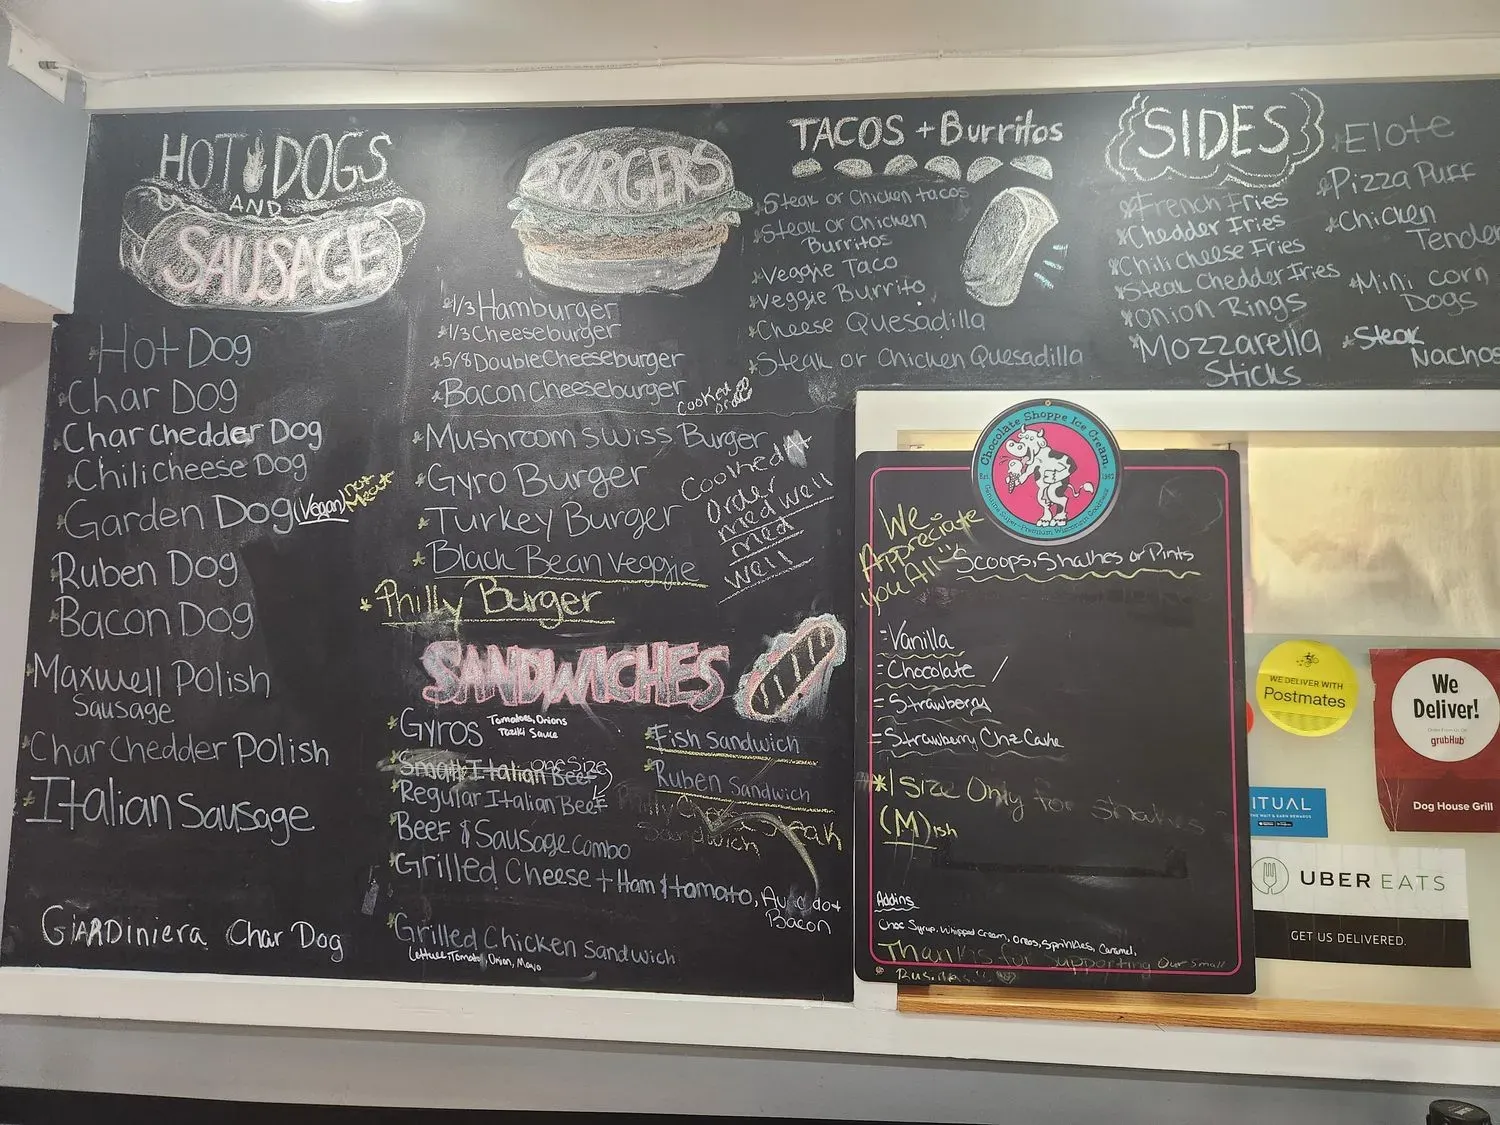 HOT DOGS
AND
SAUSAGE
Hot Dog
Char DOG
Char chedder Dog
Chilicheese Dog
Garden Dog (Vegan) not
Meat
Ruben Dog
Bacon Dog
Maxwell Polish
Sausage
Char Chedder Polish
Italian Sausage
GiARDiniera Char Dog
BURGERS
1/3 Hamburger
1/3 Cheeseburger
5/8 Double Cheeseburger
Bacon Cheeseburger
Cooked
Mushroom Swiss Burger
Gyro Burger
Turkey Burger
Black Bean Veggie
Philly Burger
Cooked
Order
med well
med
well
SANDWICHES
Gyros
Tomatoes, Onions
Taziki Sauce
Small Italian Beef
one Size
Regular Italian Beef
Beef & Sausage combo
Grilled Cheese + Ham & tomato, Avacado+
Bacon
Grilled Chicken Sandwich
Lettuce Tomato, Onion, Mayo
Fish Sandwich
Ruben Sandwich
Sandwich
TACOS + Burritos
Steak or Chicken tacos
Steak or Chicken
Burritos
Veggie Taco
Veggie Burrito
Cheese Quesadilla
Steak or Chicken Quesadilla
SIDES
French Fries
Chedder Fries
Chili Cheese Fries
Steak Chedder Fries
Onion Rings
Mozzarella
Sticks
Elote
Pizza Puff
Chicken
Tender
Mini corn
Dogs
Steak
Nachos
Chocolate Shoppe Ice Cream
Est. 1962
Genuine Super-Premium Wisconsin Goodness
We
Appreciate
you All!!
Scoops, Shakes or Pints
Vanilla
Chocolate
Strawberry
Strawberry Chz Cake
*1 Size Only for shakes
(M)ish
Addins
Choc Syrup, Whipped Cream, Oreos, Sprinkles, Caramel,
Thanks for Supporting Our Small
Business!!
WE DELIVER WITH
Postmates
We
Deliver!
Order From Us On
grubHub
Dog House Grill
ITUAL
UBER EATS
GET US DELIVERED.